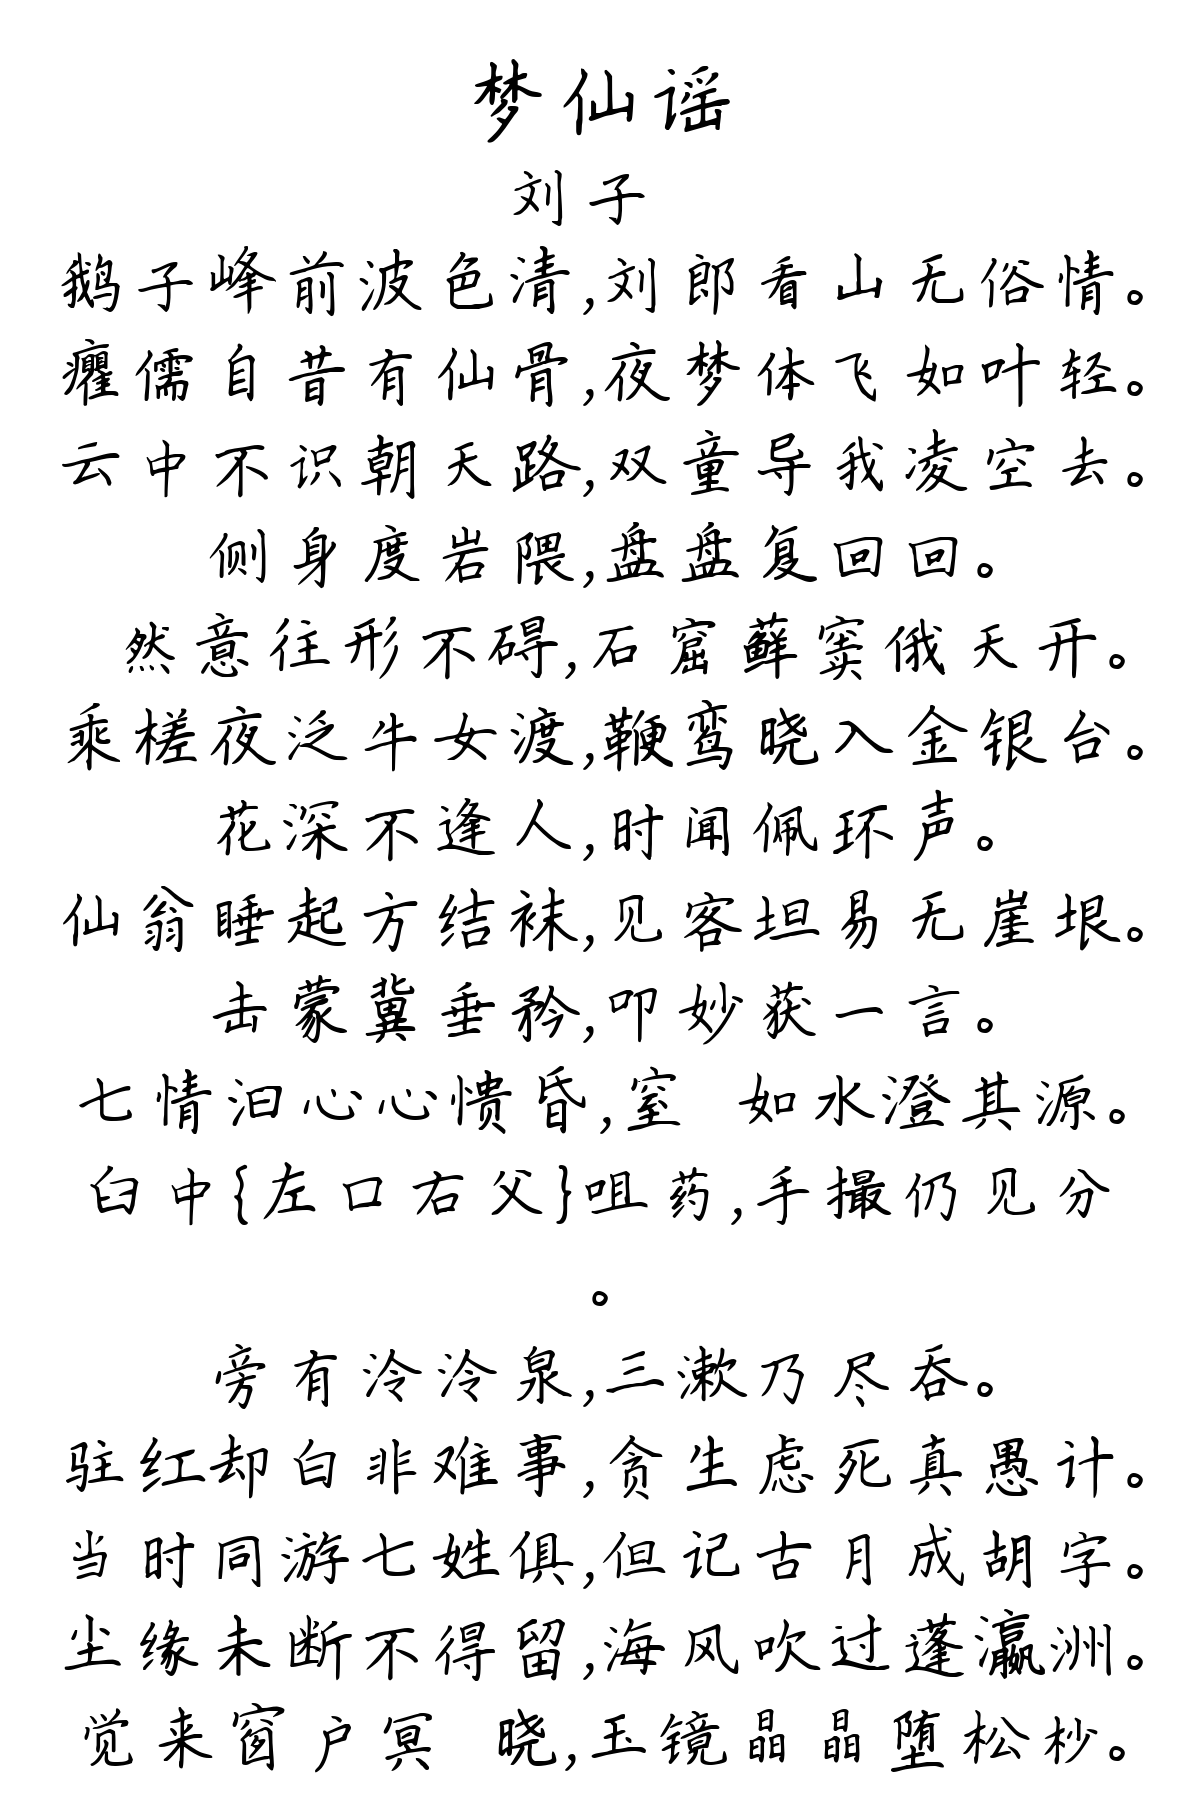 梦仙谣
刘子
鹅子峰前波色清,刘郎看山无俗情。
癯儒自昔有仙骨,夜梦体飞如叶轻。
云中不识朝天路,双童导我凌空去。
侧身度岩隈,盘盘复回回。
然意往形不碍,石窟藓窦俄天开。
乘槎夜泛牛女渡,鞭鸾晓入金银台。
花深不逢人,时闻佩环声。
仙翁睡起方结袜,见客坦易无崖垠。
击蒙冀垂矜,叩妙获一言。
七情汩心心愦昏,窒 如水澄其源。
臼中{左口右父}咀药,手撮仍见分
。
旁有泠泠泉,三漱乃尽吞。
驻红却白非难事,贪生虑死真愚计。
当时同游七姓俱,但记古月成胡字。
尘缘未断不得留,海风吹过蓬瀛洲。
觉来窗户冥 晓,玉镜晶晶堕松杪。